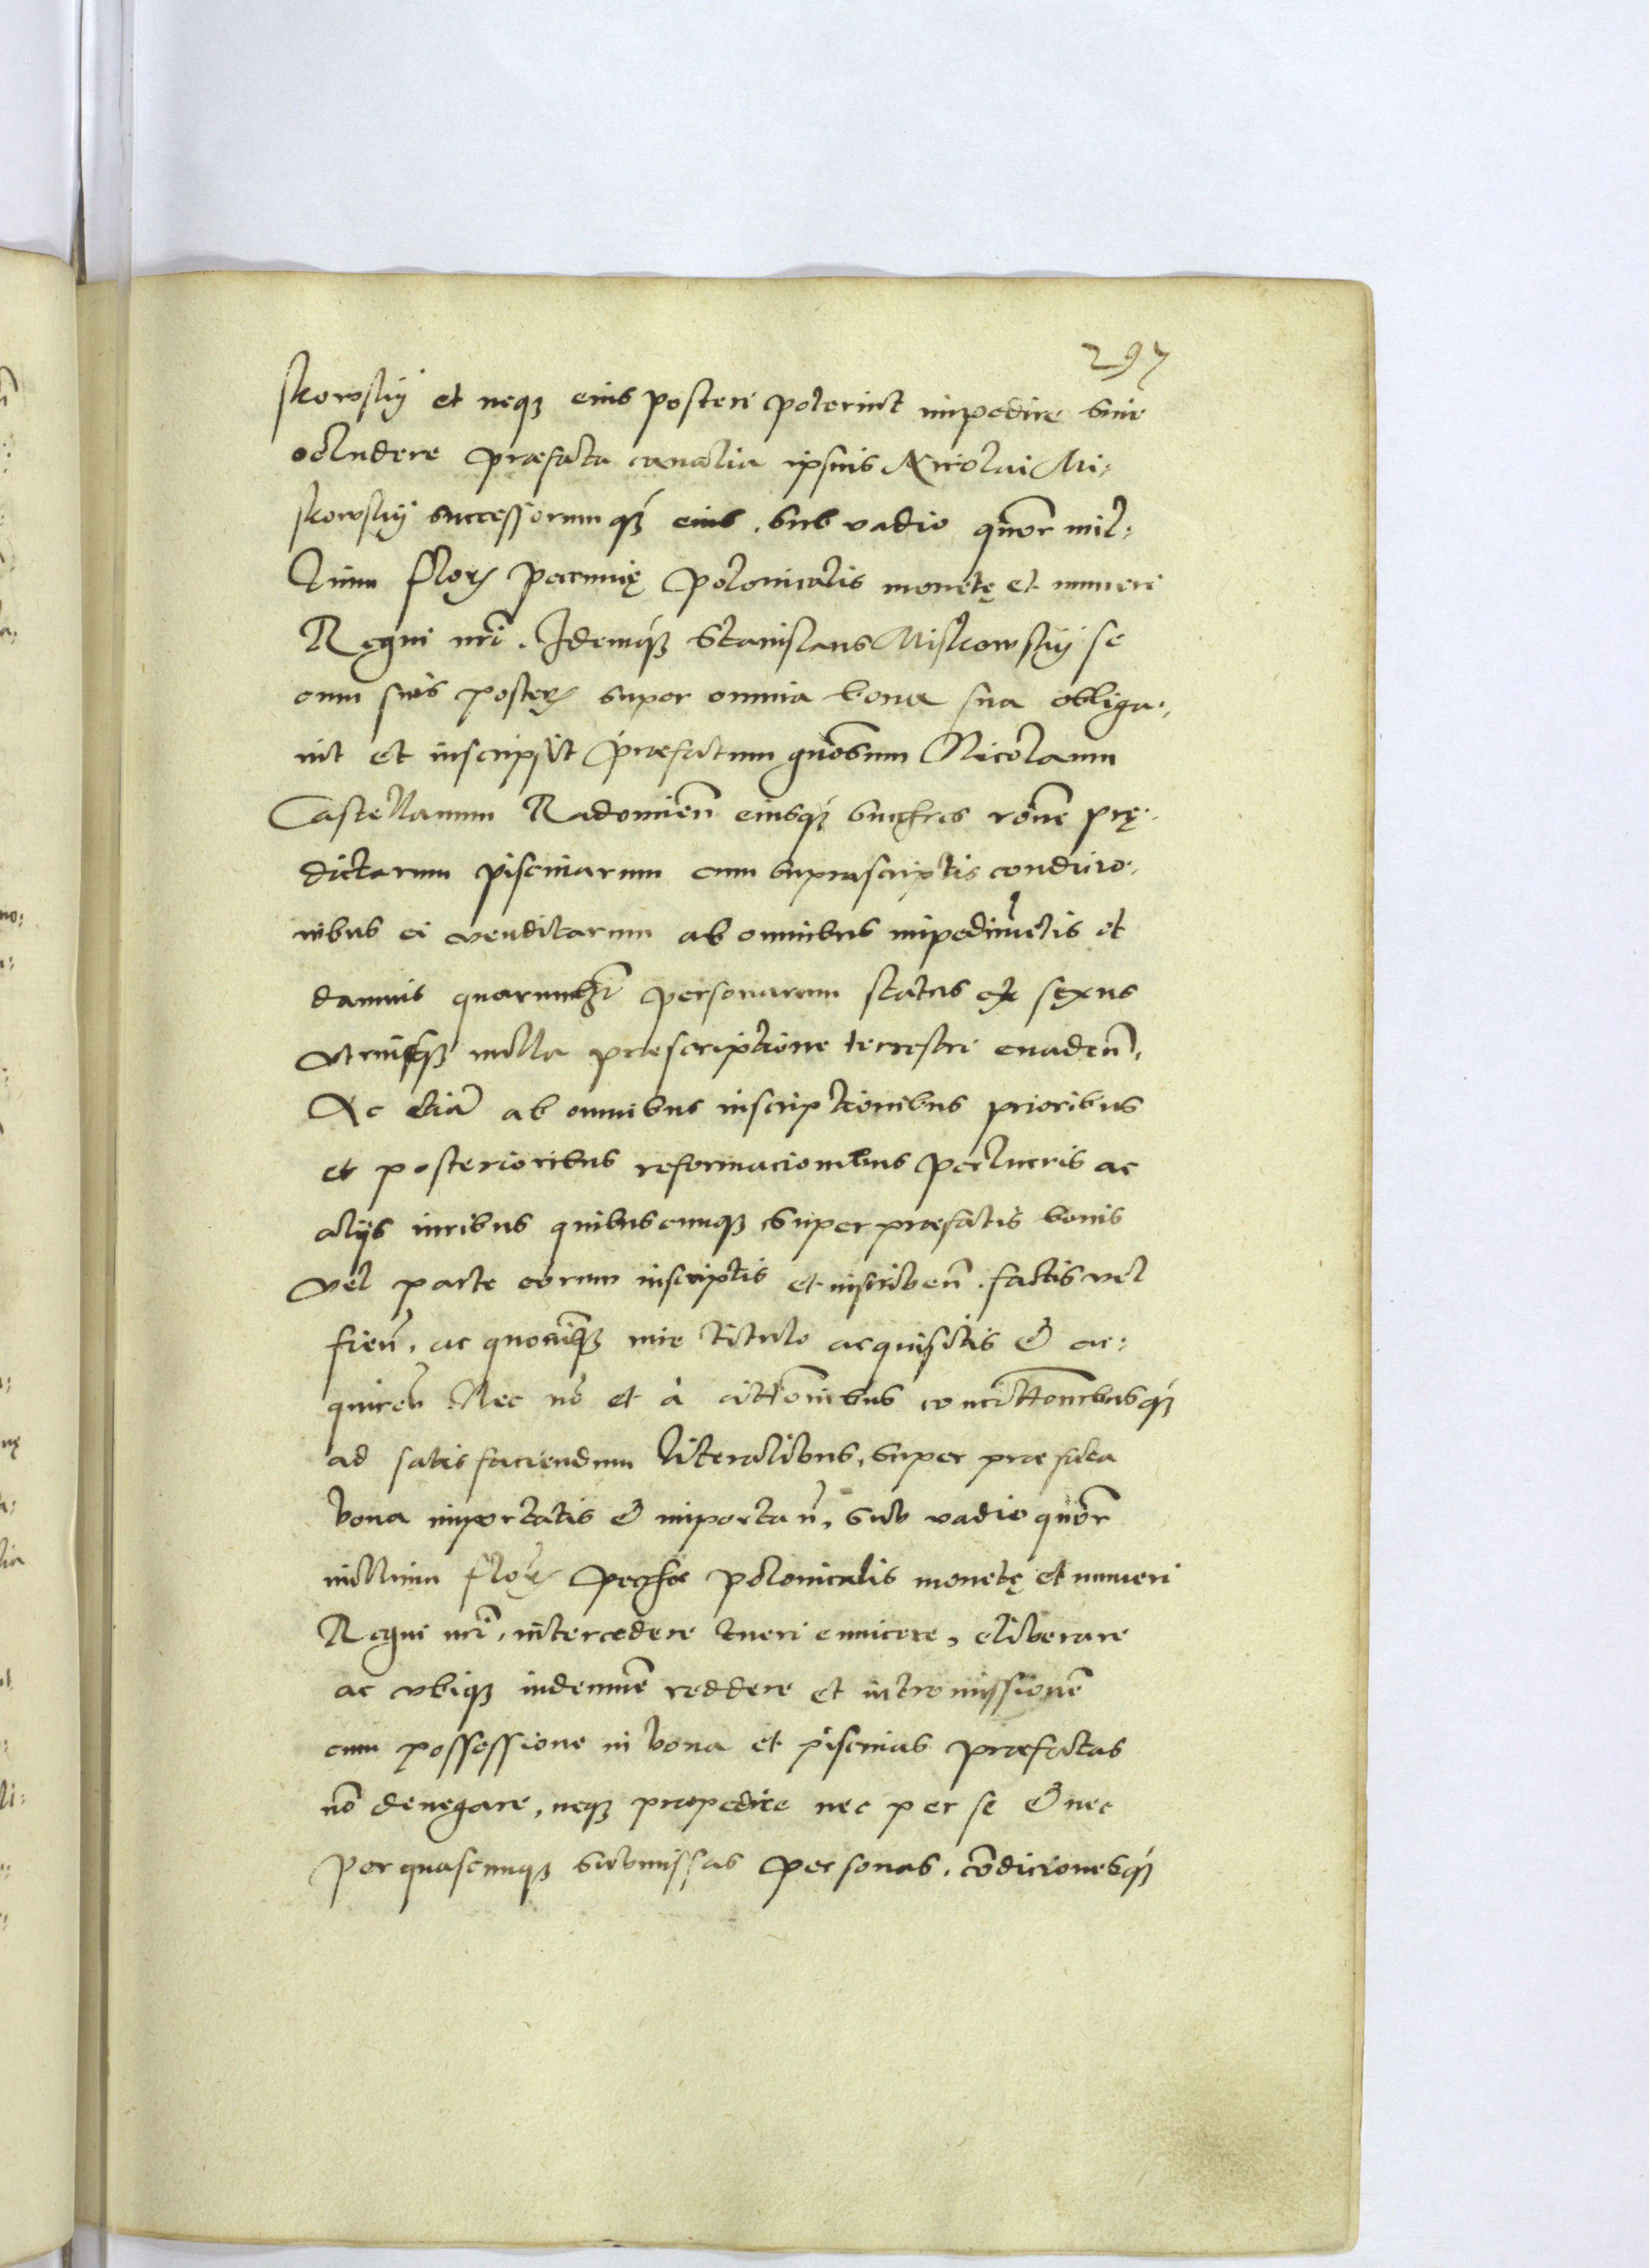 297
skowskij et neq3 eius posteri poterint impedire siue
obludere præfata canalia ipsius Nicolai Mi:
skowskij successorumq3 eius. sub vadio quor mil:
lium flor pecunię polonicalis monetę et numeri
Regni nri. Idemq3 Stanislaus Miskowskij se
cum suis poster super omnia bona sua obliga:
uit et inscripsit præfatum gnosum Nicolaum
Castellanum Radomien eiusq3 succres rone prę:
dictarum piscinarum cum suprascriptis condicio:
nibus ei venditarum ab omnibus impedimetis et
damnis quarumlibet personarum status et sexus
vtriusq3 nulla præscriptione terrestri euaden.
Ac etia ab omnibus inscriptionibus prioribus
et posterioribus reformacionibus perlucris ac
alijs iuribus quibuscunq3 super præfatis bonis
vel parte eorum inscriptis et inscriben. factis vel
fien. ac quouisq3 iure titulo acquisitis & ac:
quiren Nec no et à citationibus concitationibusq3
ad satisfaciendum literalibus, super præfata
bona importatis & importan, sub vadio quor
millium flor polonicalis monetę et numeri
Regni nri, intercedere tueri euincere, eliberare
ac vbiq3 indemne reddere et intromissione
cum possessione in bona et piscinas præfatas
no denegare, neq3 præpedire nec per se & nec
per quascunq3 submissas personas. condicionesq3